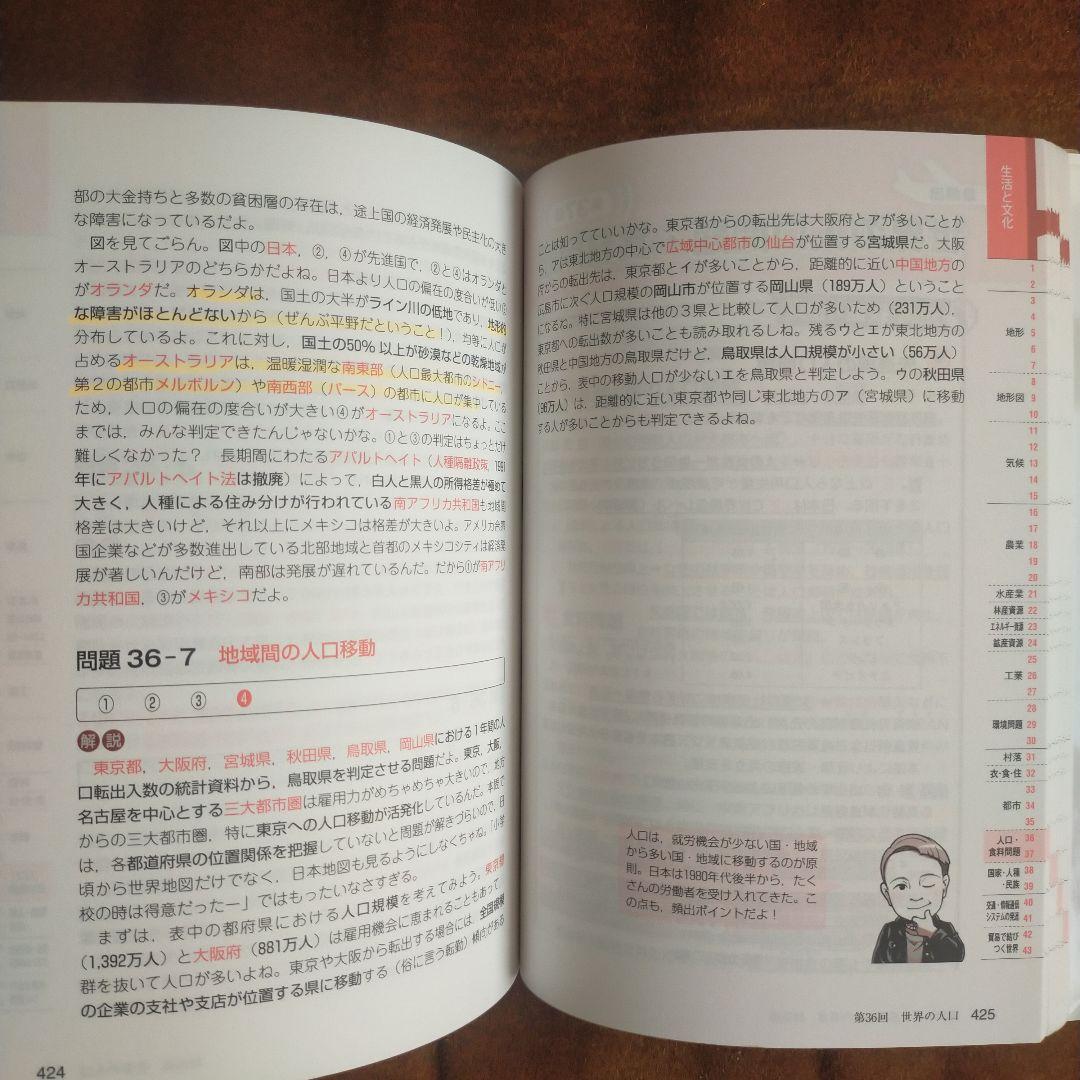 部の大金持ちと多数の貧困層の存在は，途上国の経済発展や民主化の大き
な障害になっているだよ。
図を見てごらん。図中の日本，②，④が先進国で，②と④はオランダと
オーストラリアのどちらかだよね。日本より人口の偏在の度合いが低い②
がオランダだ。オランダは，国土の大半がライン川の低地であり，地形的
な障害がほとんどないから（ぜんぶ平野だということ！），均等に人口が
分布しているよ。これに対し，国土の50％以上が砂漠などの乾燥地域が
占めるオーストラリアは，温暖湿潤な南東部（人口最大都市のシドニー
第２の都市メルボルン）や南西部（パース）の都市に人口が集中している
ため，人口の偏在の度合いが大きい④がオーストラリアになるよ。ここ
までは，みんな判定できたんじゃないかな。①と③の判定はちょっとだけ
難しくなかった？　長期間にわたるアパルトヘイト（人種隔離政策，1991
年にアパルトヘイト法は撤廃）によって，白人と黒人の所得格差が極めて
大きく，人種による住み分けが行われている南アフリカ共和国も地域間
格差は大きいけど，それ以上にメキシコは格差が大きいよ。アメリカ合衆
国企業などが多数進出している北部地域と首都のメキシコシティは経済発
展が著しいんだけど，南部は発展が遅れているんだ。だから①が南アフリ
カ共和国，③がメキシコだよ。
問題 36－7　地域間の人口移動
①　②　③　④
解説
東京都，大阪府，宮城県，秋田県，鳥取県，岡山県における１年間の人
口転出入数の統計資料から，鳥取県を判定させる問題だよ。東京，大阪，
名古屋を中心とする三大都市圏は雇用力がめちゃめちゃ大きいので，地方
からの三大都市圏，特に東京への人口移動が活発化しているんだ。本問で
は，各都道府県の位置関係を把握していないと問題が解きづらいので，日
頃から世界地図だけでなく，日本地図も見るようにしなくちゃね。「小学
校の時は得意だったー」ではもったいなさすぎる。
まずは，表中の都府県における人口規模を考えてみよう。東京都
（1,392万人）と大阪府（881万人）は雇用機会に恵まれることもあって，
群を抜いて人口が多いよね。東京や大阪から転出する場合には，全国規模
の企業の支社や支店が位置する県に移動する（俗に言う転勤）傾向がある
424
ことは知ってていいかな。東京都からの転出先は大阪府とアが多いことか
ら，アは東北地方の中心で広域中心都市の仙台が位置する宮城県だ。大阪
府からの転出先は，東京都とイが多いことから，距離的に近い中国地方の
広島市に次ぐ人口規模の岡山市が位置する岡山県（189万人）ということ
になるね。特に宮城県は他の３県と比較して人口が多いため（231万人），
東京都への転出数が多いことも読み取れるしね。残るウとエが東北地方の
秋田県と中国地方の鳥取県だけど，鳥取県は人口規模が小さい（56万人）
ことから，表中の移動人口が少ないエを鳥取県と判定しよう。ウの秋田県
（98万人）は，距離的に近い東京都や同じ東北地方のア（宮城県）に移動
する人が多いことからも判定できるよね。
人口は，就労機会が少ない国・地域
から多い国・地域に移動するのが原
則。日本は1980年代後半から，たく
さんの労働者を受け入れてきた。こ
の点も，頻出ポイントだよ！
生活と文化
1
2
3
4
地形 5
6
7
8
地形図 9
10
11
12
気候 13
14
15
16
17
農業 18
19
20
水産業 21
林産資源 22
エネルギー資源 23
鉱産資源 24
25
工業 26
27
28
環境問題 29
30
村落 31
衣・食・住 32
33
都市 34
35
人口・ 36
食料問題 37
国家・人種 38
・民族 39
交通・情報通信 40
システムの発達 41
貿易で結び 42
つく世界 43
第36回　世界の人口　425